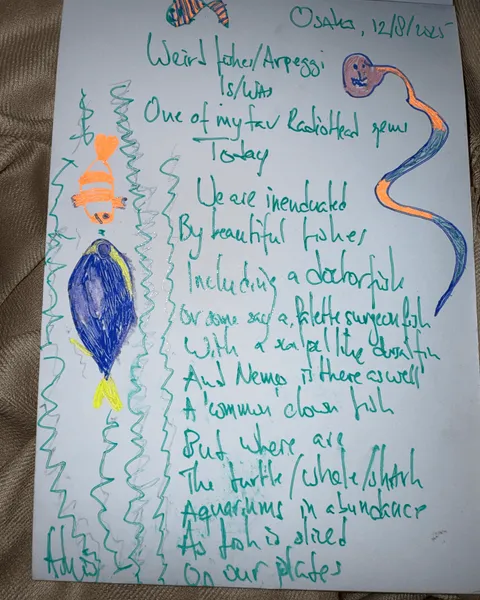 Osaka, 12/8/2025
Weird fishes/Arpeggi
Is/Was
One of my fav RadioHead gems
Today
We are inenduated
By beautiful fishes
Including a doctorfish
Or some say a palette surgeonfish
With a scalpel like dorsal fin
And Nemo is there as well
A common clown fish
But where are
The turtle/whale/shark
Aquariums in abundance
As fish is sliced
On our plates